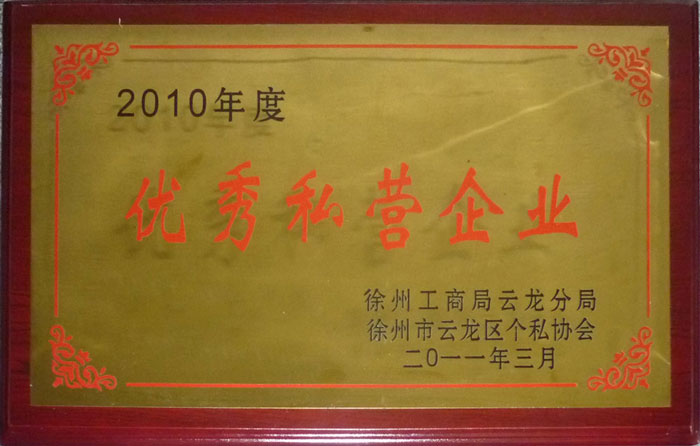 2010年度
优秀私营企业
徐州工商局云龙分局
徐州市云龙区个私协会
二0一一年三月